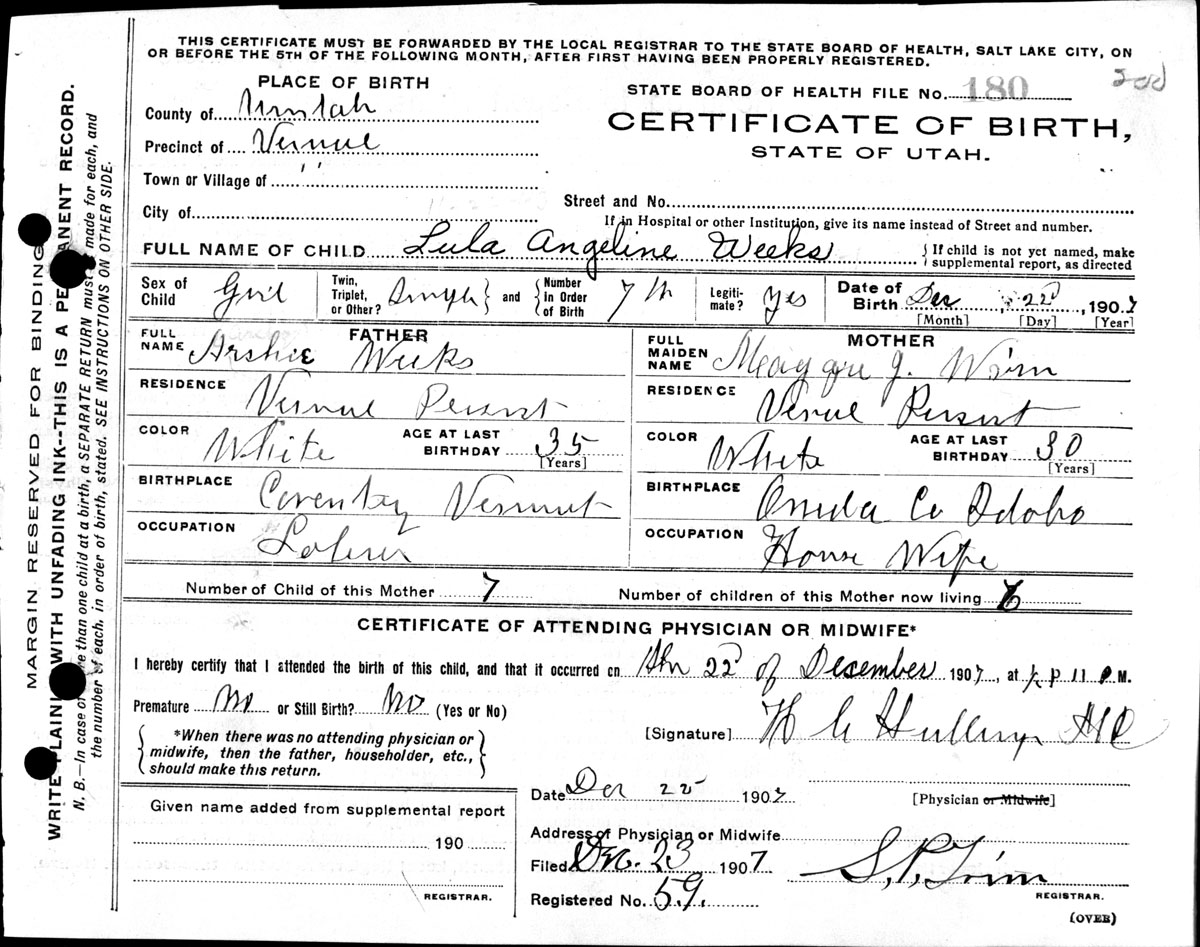 THIS CERTIFICATE MUST BE FORWARDED BY THE LOCAL REGISTRAR TO THE STATE BOARD OF HEALTH, SALT LAKE CITY, ON
OR BEFORE THE 5TH OF THE FOLLOWING MONTH, AFTER FIRST HAVING BEEN PROPERLY REGISTERED.
PLACE OF BIRTH
STATE BOARD OF HEALTH FILE No. 180
County of
CERTIFICATE OF BIRTH,
STATE OF UTAH.
Precinct of
Town or Village of "
City of
Street and No.
If in Hospital or other Institution, give its name instead of Street and number.
FULL NAME OF CHILD Lula Angeline Weeks {If child is not yet named, make supplemental report, as directed
Sex of Child Girl Twin, Triplet, or Other? } and { Number in Order of Birth 7th Legitimate? Yes Date of Birth Dec 22d, 1907
[Month] [Day] [Year]
FATHER
FULL NAME Archie Weeks
RESIDENCE
COLOR White AGE AT LAST BIRTHDAY 35
[Years]
BIRTHPLACE Coventry Vermont
OCCUPATION
MOTHER
FULL MAIDEN NAME J.
RESIDENCE
COLOR White AGE AT LAST BIRTHDAY 30
[Years]
BIRTHPLACE Oneida Co Idaho
OCCUPATION House Wife
Number of Child of this Mother 7 Number of children of this Mother now living
CERTIFICATE OF ATTENDING PHYSICIAN OR MIDWIFE*
I hereby certify that I attended the birth of this child, and that it occurred on 22d of December 1907, at 11 P.M.
Premature No or Still Birth? No (Yes or No)
[Signature]
*When there was no attending physician or
midwife, then the father, householder, etc.,
should make this return.
Date Dec 22 1907
[Physician or Midwife]
Given name added from supplemental report
190
REGISTRAR.
Address of Physician or Midwife
Filed Dec. 23 1907
Registered No. 59.
REGISTRAR.
(OVER)
MARGIN RESERVED FOR BINDING
WRITE PLAINLY WITH UNFADING INK--THIS IS A PERMANENT RECORD.
N. B.—In case of more than one child at a birth, a SEPARATE RETURN must be made for each, and
the number of each, in order of birth, stated. SEE INSTRUCTIONS ON OTHER SIDE.